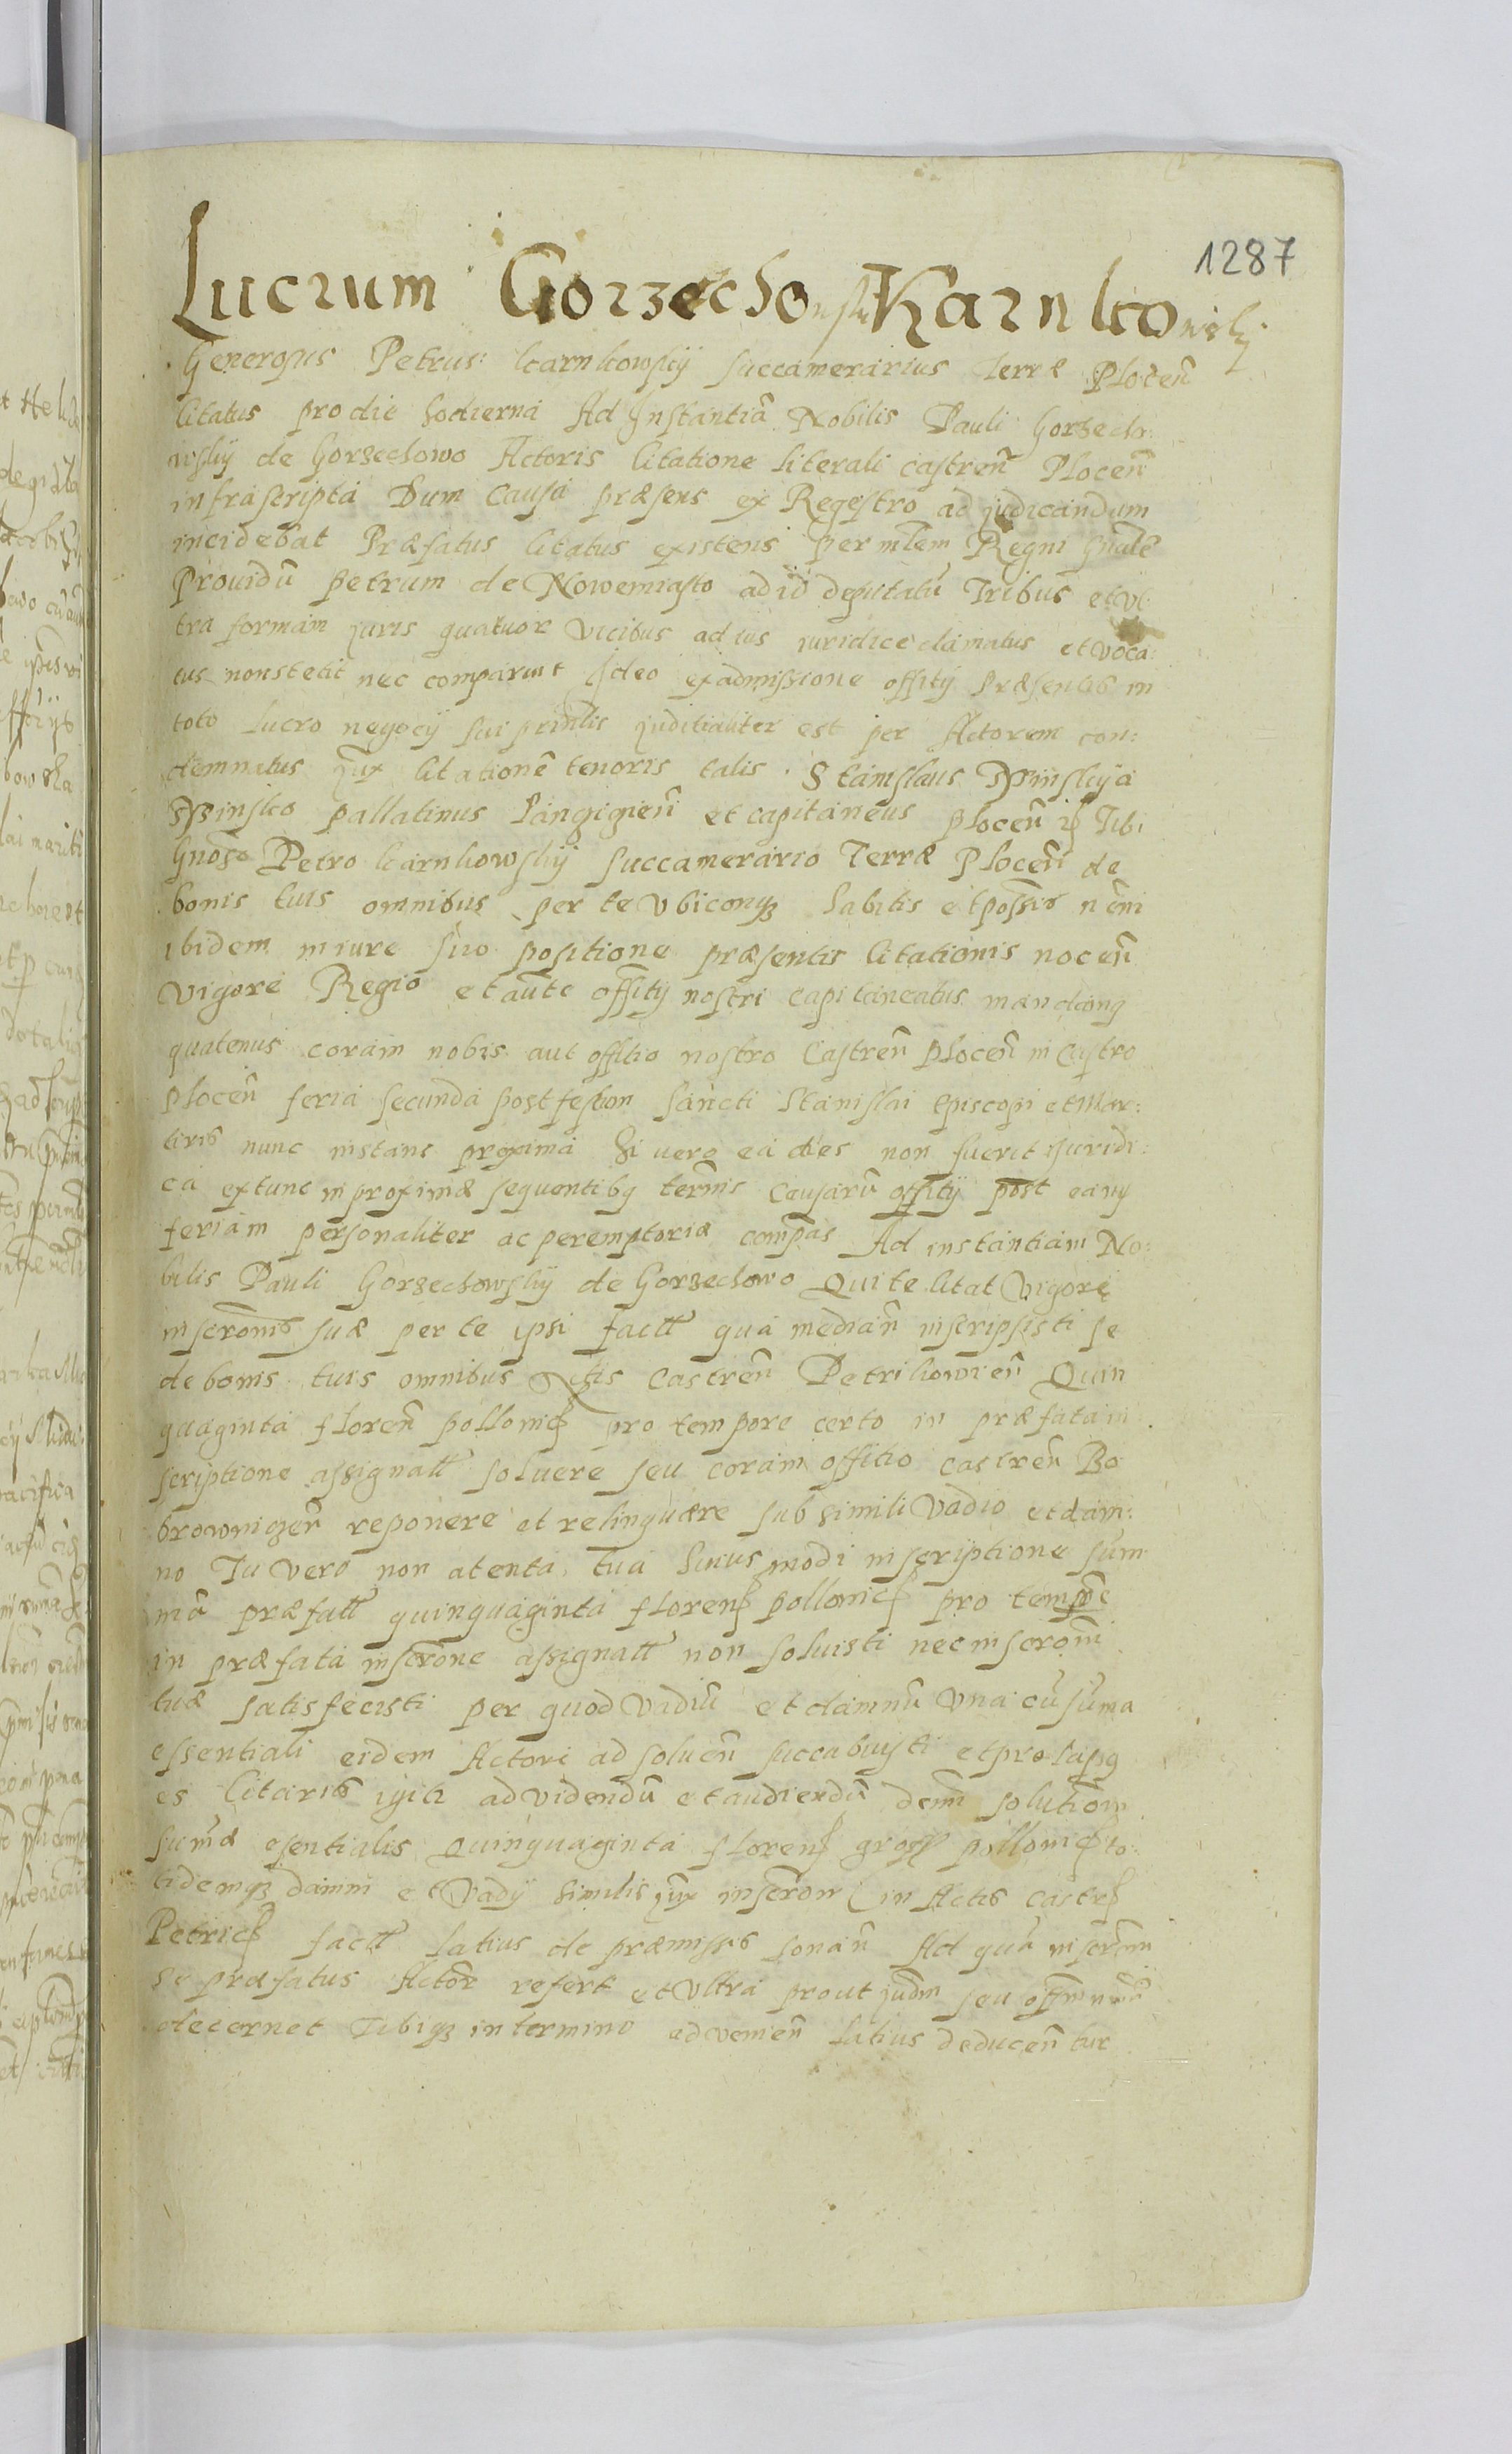 1287
Lucrum Gorzechonski Karnkowski
Generosus Petrus Karnkowskij succamerarius Terræ Plocen̄
citatus pro die hodierna Ad Instantiā Nobilis Pauli Gorzecho:
wskij de Gorzechowo Actoris Citatione literali castren̄ Plocen̄
infrascripta Dum Causa præsens ex Regestro ad judicandum
incidebat Præfatus citatus existens per mlem Regni gnalē
Providū Petrum de Nowemiasto ad id deputatū Tribus et vl
tra formam juris quatuor vicibus ad ius iuridice clamatus et voca:
tus non stetit nec comparuit Ideo ex admissione offitij Præsentis in
toto lucro negocij sui prinlis juditialiter est per Actorem con:
demnatus jux citationē tenoris talis. Stanislaus
pallatinus et capitaneus plocen̄ Tibi
Gnoso Petro Karnkowskij succamerario Terræ Plocen̄ de
bonis tuis omnibus per te vbiconq̄ habitis et possis
ibidem in iure suo positione præsentis citationis nocen̄
vigore Regio et aute offitij nostri capitaneatus mandamq
quatenus coram nobis aut offitio nostro Castren̄ plocen̄ in Castro
plocen̄ feria secunda post festum Sancti Stanislai Episcopi et Mar:
tiris nunc instans proxima Si vero ea dies non fuerit juridi:
ca extunc in proximæ sequentibq termis Causarū offitij post eam
feriam personaliter ac peremptoriæ compas Ad instantiam No:
bilis Pauli Gorzechowskij de Gorzechowo Qui te citat vigore
inscronis suæ per te ipsi fact qua median̄ inscripsisti se
de bonis tuis omnibus Actis Castren̄ Petrikowien̄ Quin
quaginta floren̄ pollonic pro tempore certo in præfata in
scriptione assignatt solvere seu coram offitio castren̄ Bo
brownicen̄ reponere et relinquere sub simili vadio et dam:
no Tu vero non atenta tua huiusmodi inscriptione sum
mā præfatt quinquaginta floren pollonic pro tempore
in præfata inscrone assignatt non solvisti nec inscroni
tuæ satisfecisti per quod vadiū et damnū vna cū sūma
essentiali eidem Actori ad solven̄ succubuisti et prolapsq
es Citaris igitr ad videndū et audiendū solutionem
sumæ esentialis Quinquaginta floren gross pollonic to:
tidemq̄ damni et vadij similis jux inscron in Actis castr
Petric fact latius de præmissis sonan̄ Ad quā inscronem
se præfatus Actor refert et vltra prout judm seu offm nrm
decernet Tibiq̄ in termino advenien̄ latius deducen̄tur